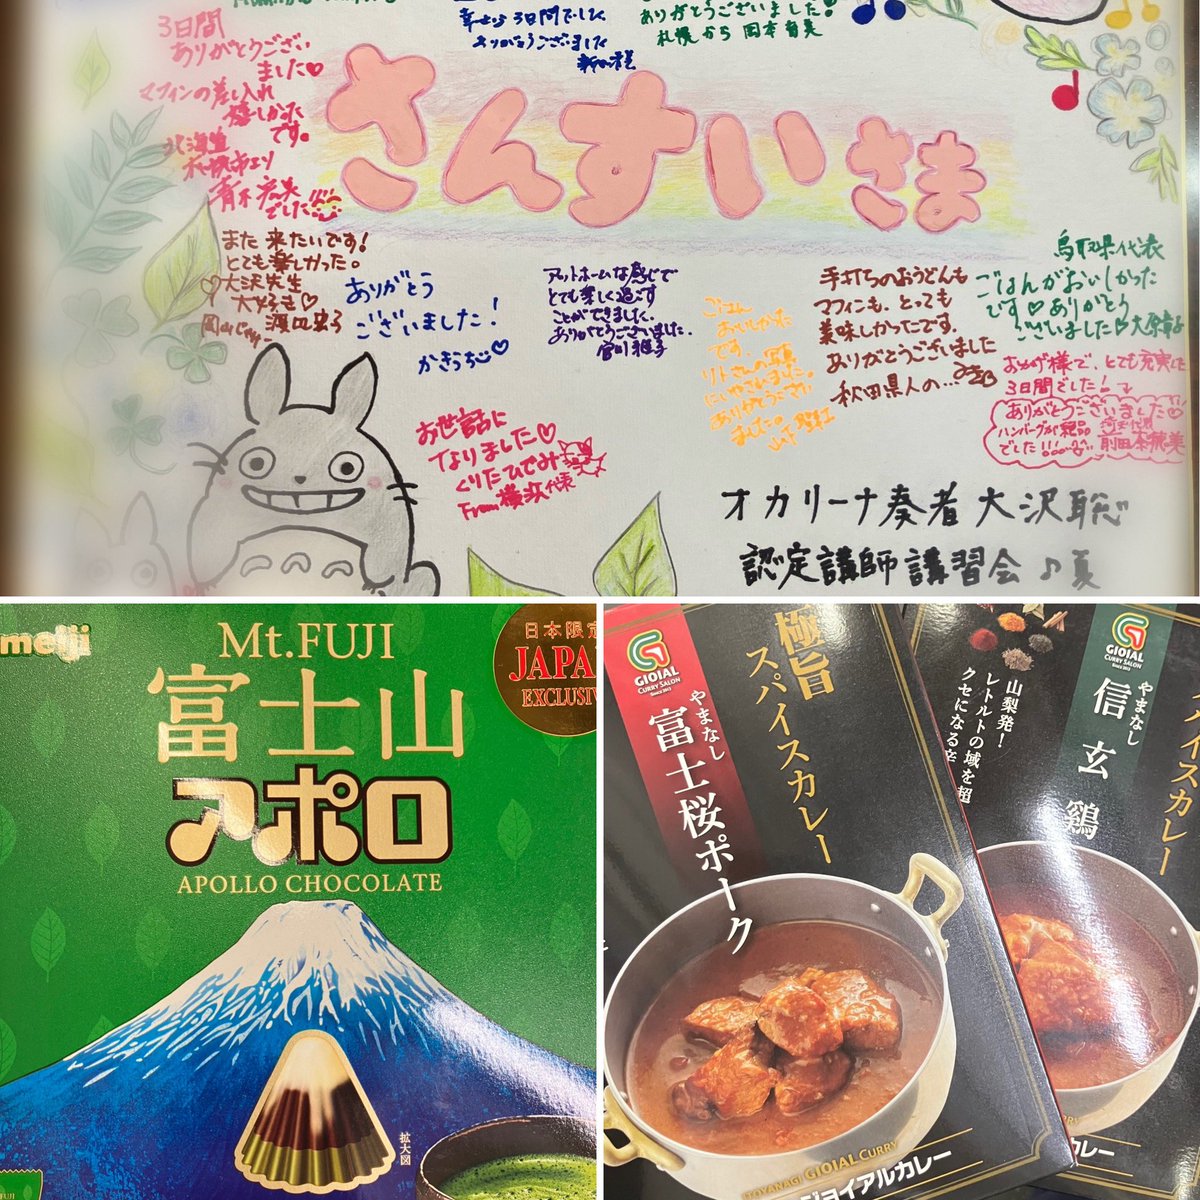 幸せな3日間でした
ありがとうございました
ありがとうございました!
札幌から 岡本
3日間
ありがとうござい
ました♡
マフィンの差し入れ
嬉しかった
です。
北海道
青木 宏美
でした
さんすいさま
また 来たいです!
とても楽しかった。
♡大沢先生
大好き♡
ありがとう
ございました!
かきうち
アットホームな感じで
とても楽しく過ごす
ことができました。
ありがとうございました。
宮川 雅子
ごはん
おいしかった
です。
リトさんの写真
ありがとうござい
ました。
手打ちのおうどんも
マフィンも、とっても
美味しかったです。
ありがとうございました
秋田県人の…
鳥取県代表
ごはんがおいしかった
です♡ありがとう
ございました♡大原
おかげ様で、とても充実した
3日間でした!
ありがとうございました♡
ハンバーグが絶品
でした!!!
前田
お世話に
なりました♡
くりたひでみ
From 横浜代表
オカリーナ奏者 大沢聡
認定講師講習会♪夏
meiji
Mt.FUJI
富士山
アポロ
APOLLO CHOCOLATE
日本限定
JAPAN
EXCLUSIV
拡大図
GIOIAL
CURRY SALON
SINCE 2013
やまなし
富士桜ポーク
極旨
スパイスカレー
ITOYANAGI GIOIAL CURRY
ジョイアルカレー
GIOIAL
CURRY SALON
SINCE 2013
やまなし
信玄鶏
イスカレー
山梨発!
レトルトの域を超
クセになる辛
カレー